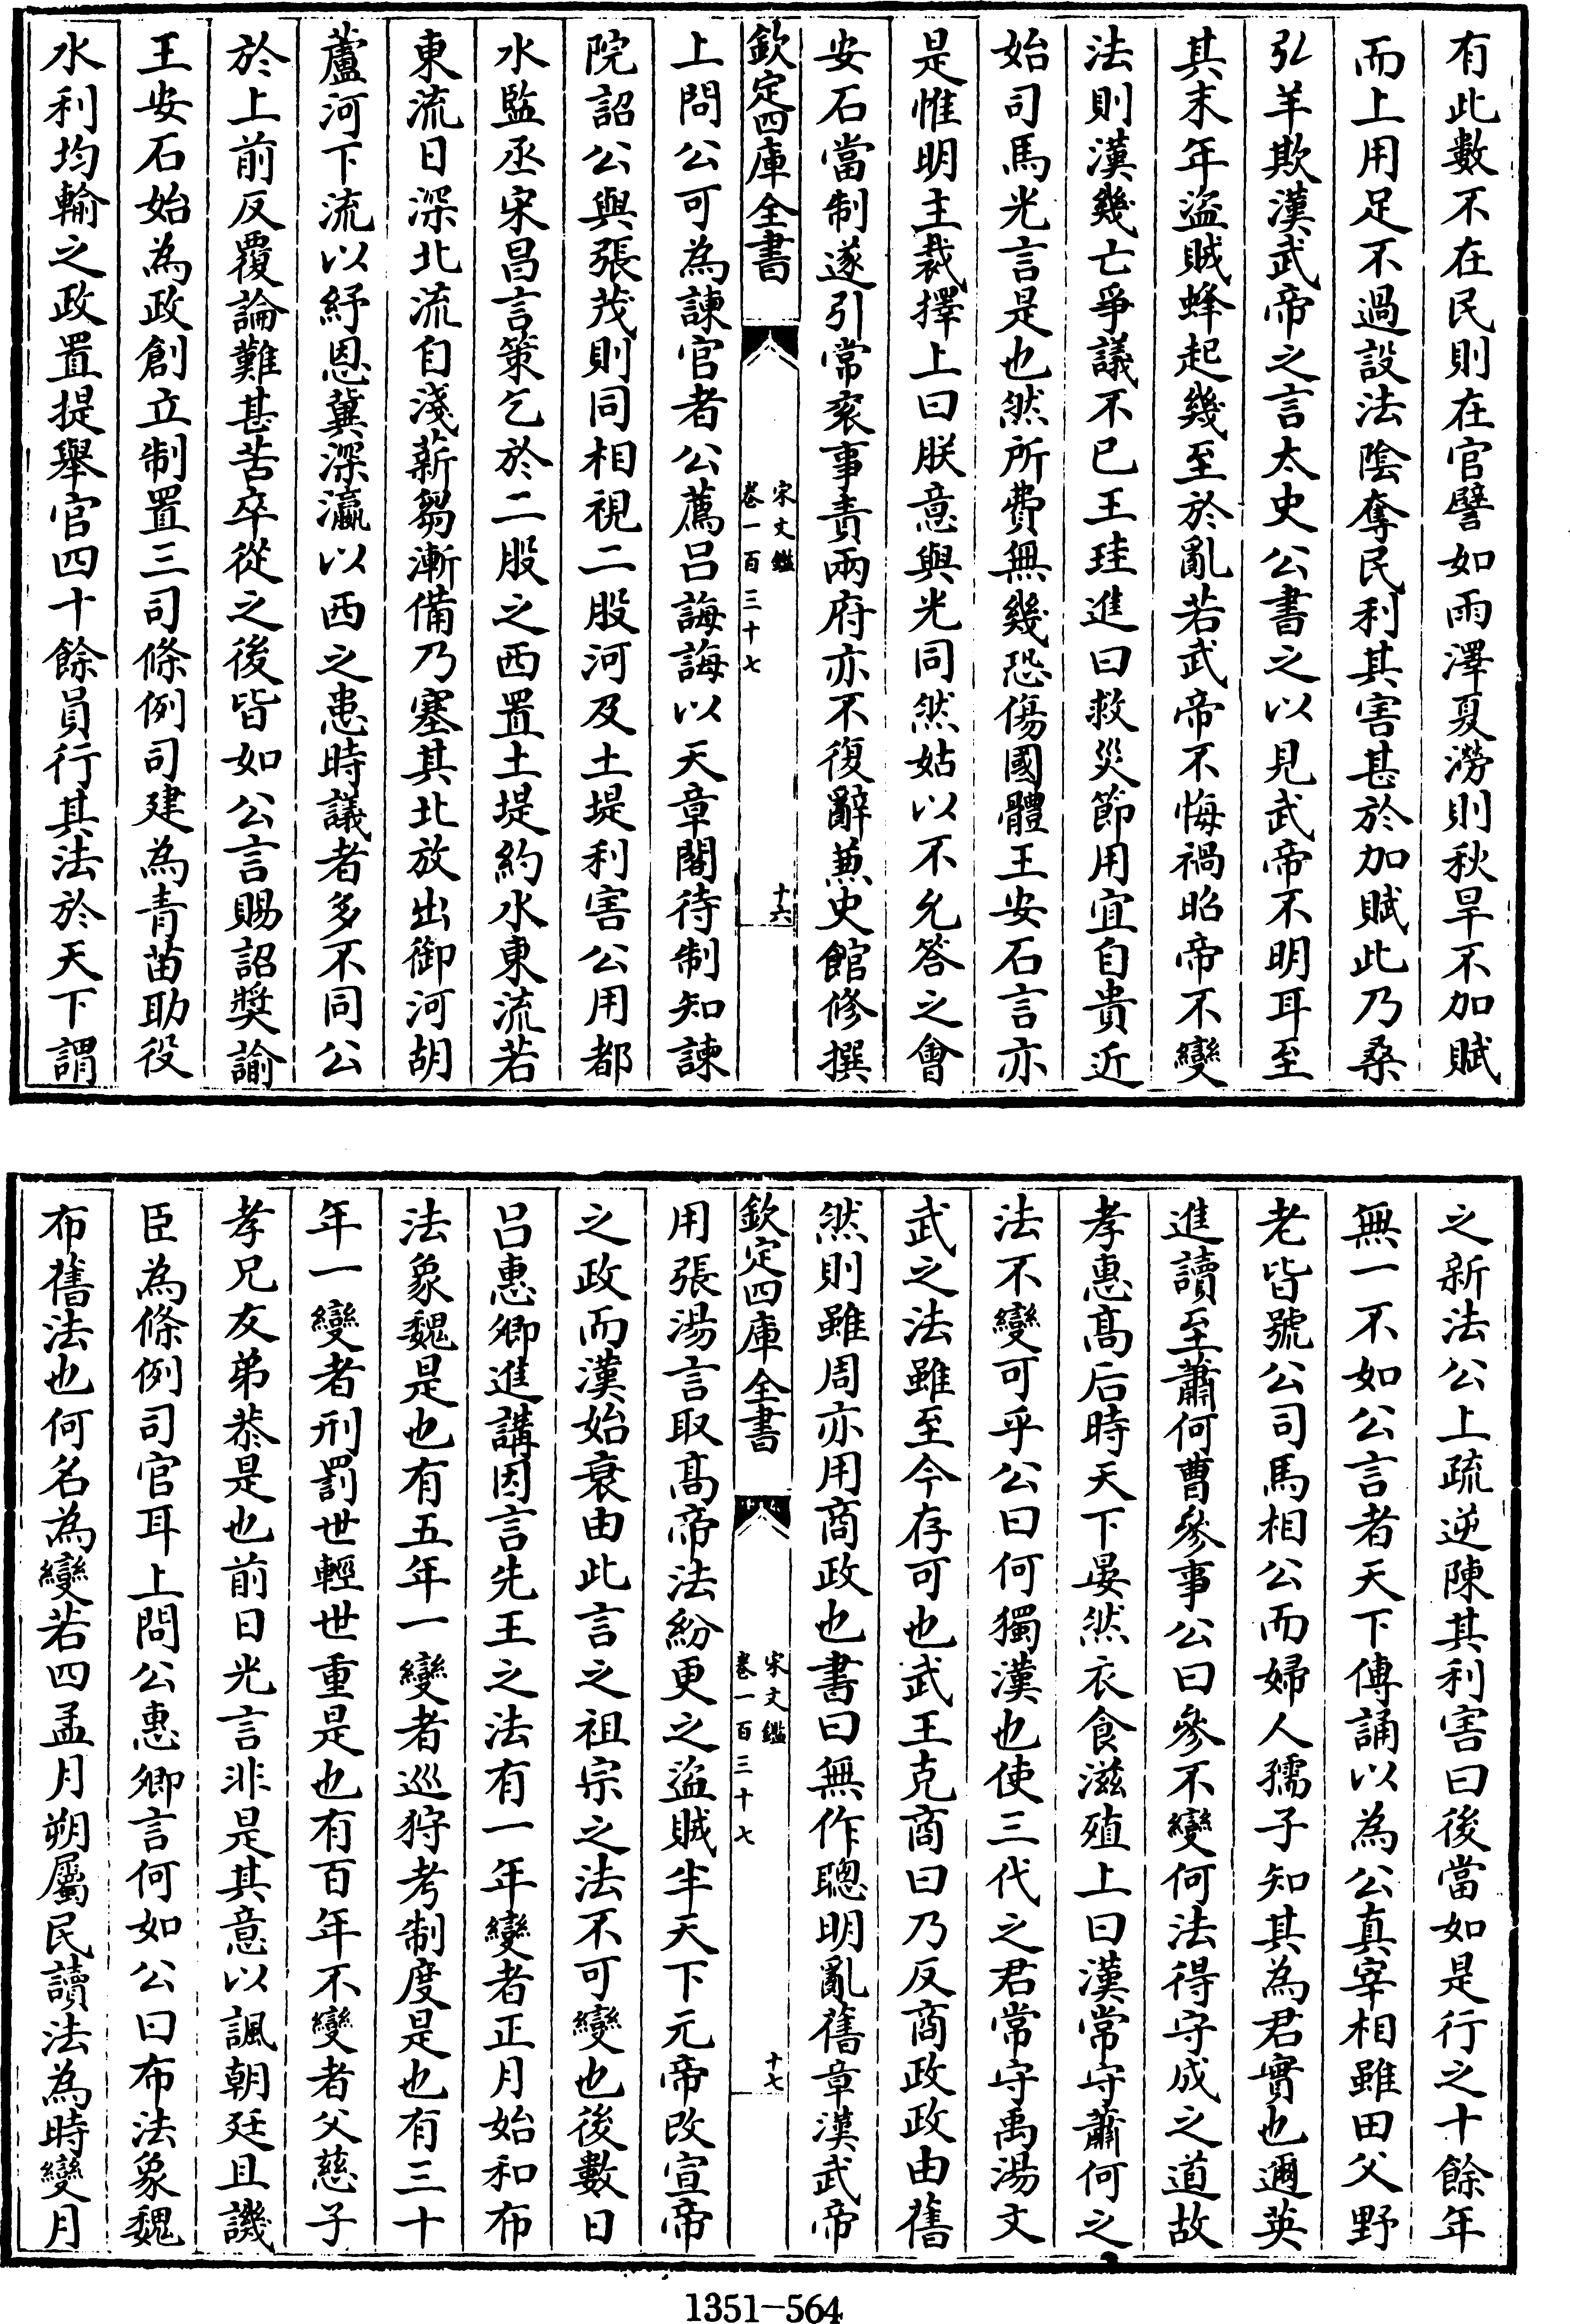 有此數不在民則在官譬如雨澤夏澇則秋旱不加賦
而上用足不過設法陰奪民利其害甚於加賦此乃桑
弘羊欺漢武帝之言太史公書之以見武帝不明耳至
其末年盜賊蜂起幾至於亂若武帝不悔禍昭帝不變
法則漢幾亡爭議不已王珪進曰救災節用宜自貴近
始司馬光言是也然所費無幾恐傷國體王安石言亦
是惟明主裁擇上曰朕意與光同然姑以不允答之會
安石當制遂引常衮事責兩府亦不復辭兼史館修撰
欽定四庫全書
宋文鑑
卷一百三十七
十六
上問公可為諫官者公薦呂誨誨以天章閣待制知諫
院詔公與張茂則同相視二股河及土堤利害公用都
水監丞宋昌言策乞於二股之西置土堤約水東流若
東流日深北流自淺薪芻漸備乃塞其北放出御河胡
蘆河下流以紓恩冀深瀛以西之患時議者多不同公
於上前反覆論難甚苦卒從之後皆如公言賜詔奬諭
王安石始為政創立制置三司條例司建為青苗助役
水利均輸之政置提舉官四十餘員行其法於天下謂
之新法公上疏逆陳其利害曰後當如是行之十餘年
無一不如公言者天下傳誦以為公真宰相雖田父野
老皆號公司馬相公而婦人孺子知其為君實也邇英
進讀至蕭何曹參事公曰參不變何法得守成之道故
孝惠高后時天下晏然衣食滋殖上曰漢常守蕭何之
法不變可乎公曰何獨漢也使三代之君常守禹湯文
武之法雖至今存可也武王克商曰乃反商政政由舊
然則雖周亦用商政也書曰無作聰明亂舊章漢武帝
欽定四庫全書
宋文鑑
卷一百三十七
十七
用張湯言取高帝法紛更之盜賊半天下元帝改宣帝
之政而漢始衰由此言之祖宗之法不可變也後數日
呂惠卿進講因言先王之法有一年變者正月始和布
法象魏是也有五年一變者巡狩考制度是也有三十
年一變者刑罰世輕世重是也有百年不變者父慈子
孝兄友弟恭是也前日光言非是其意以諷朝廷且譏
臣為條例司官耳上問公惠卿言何如公曰布法象魏
布舊法也何名為變若四孟月朔屬民讀法為時變月
1351-564